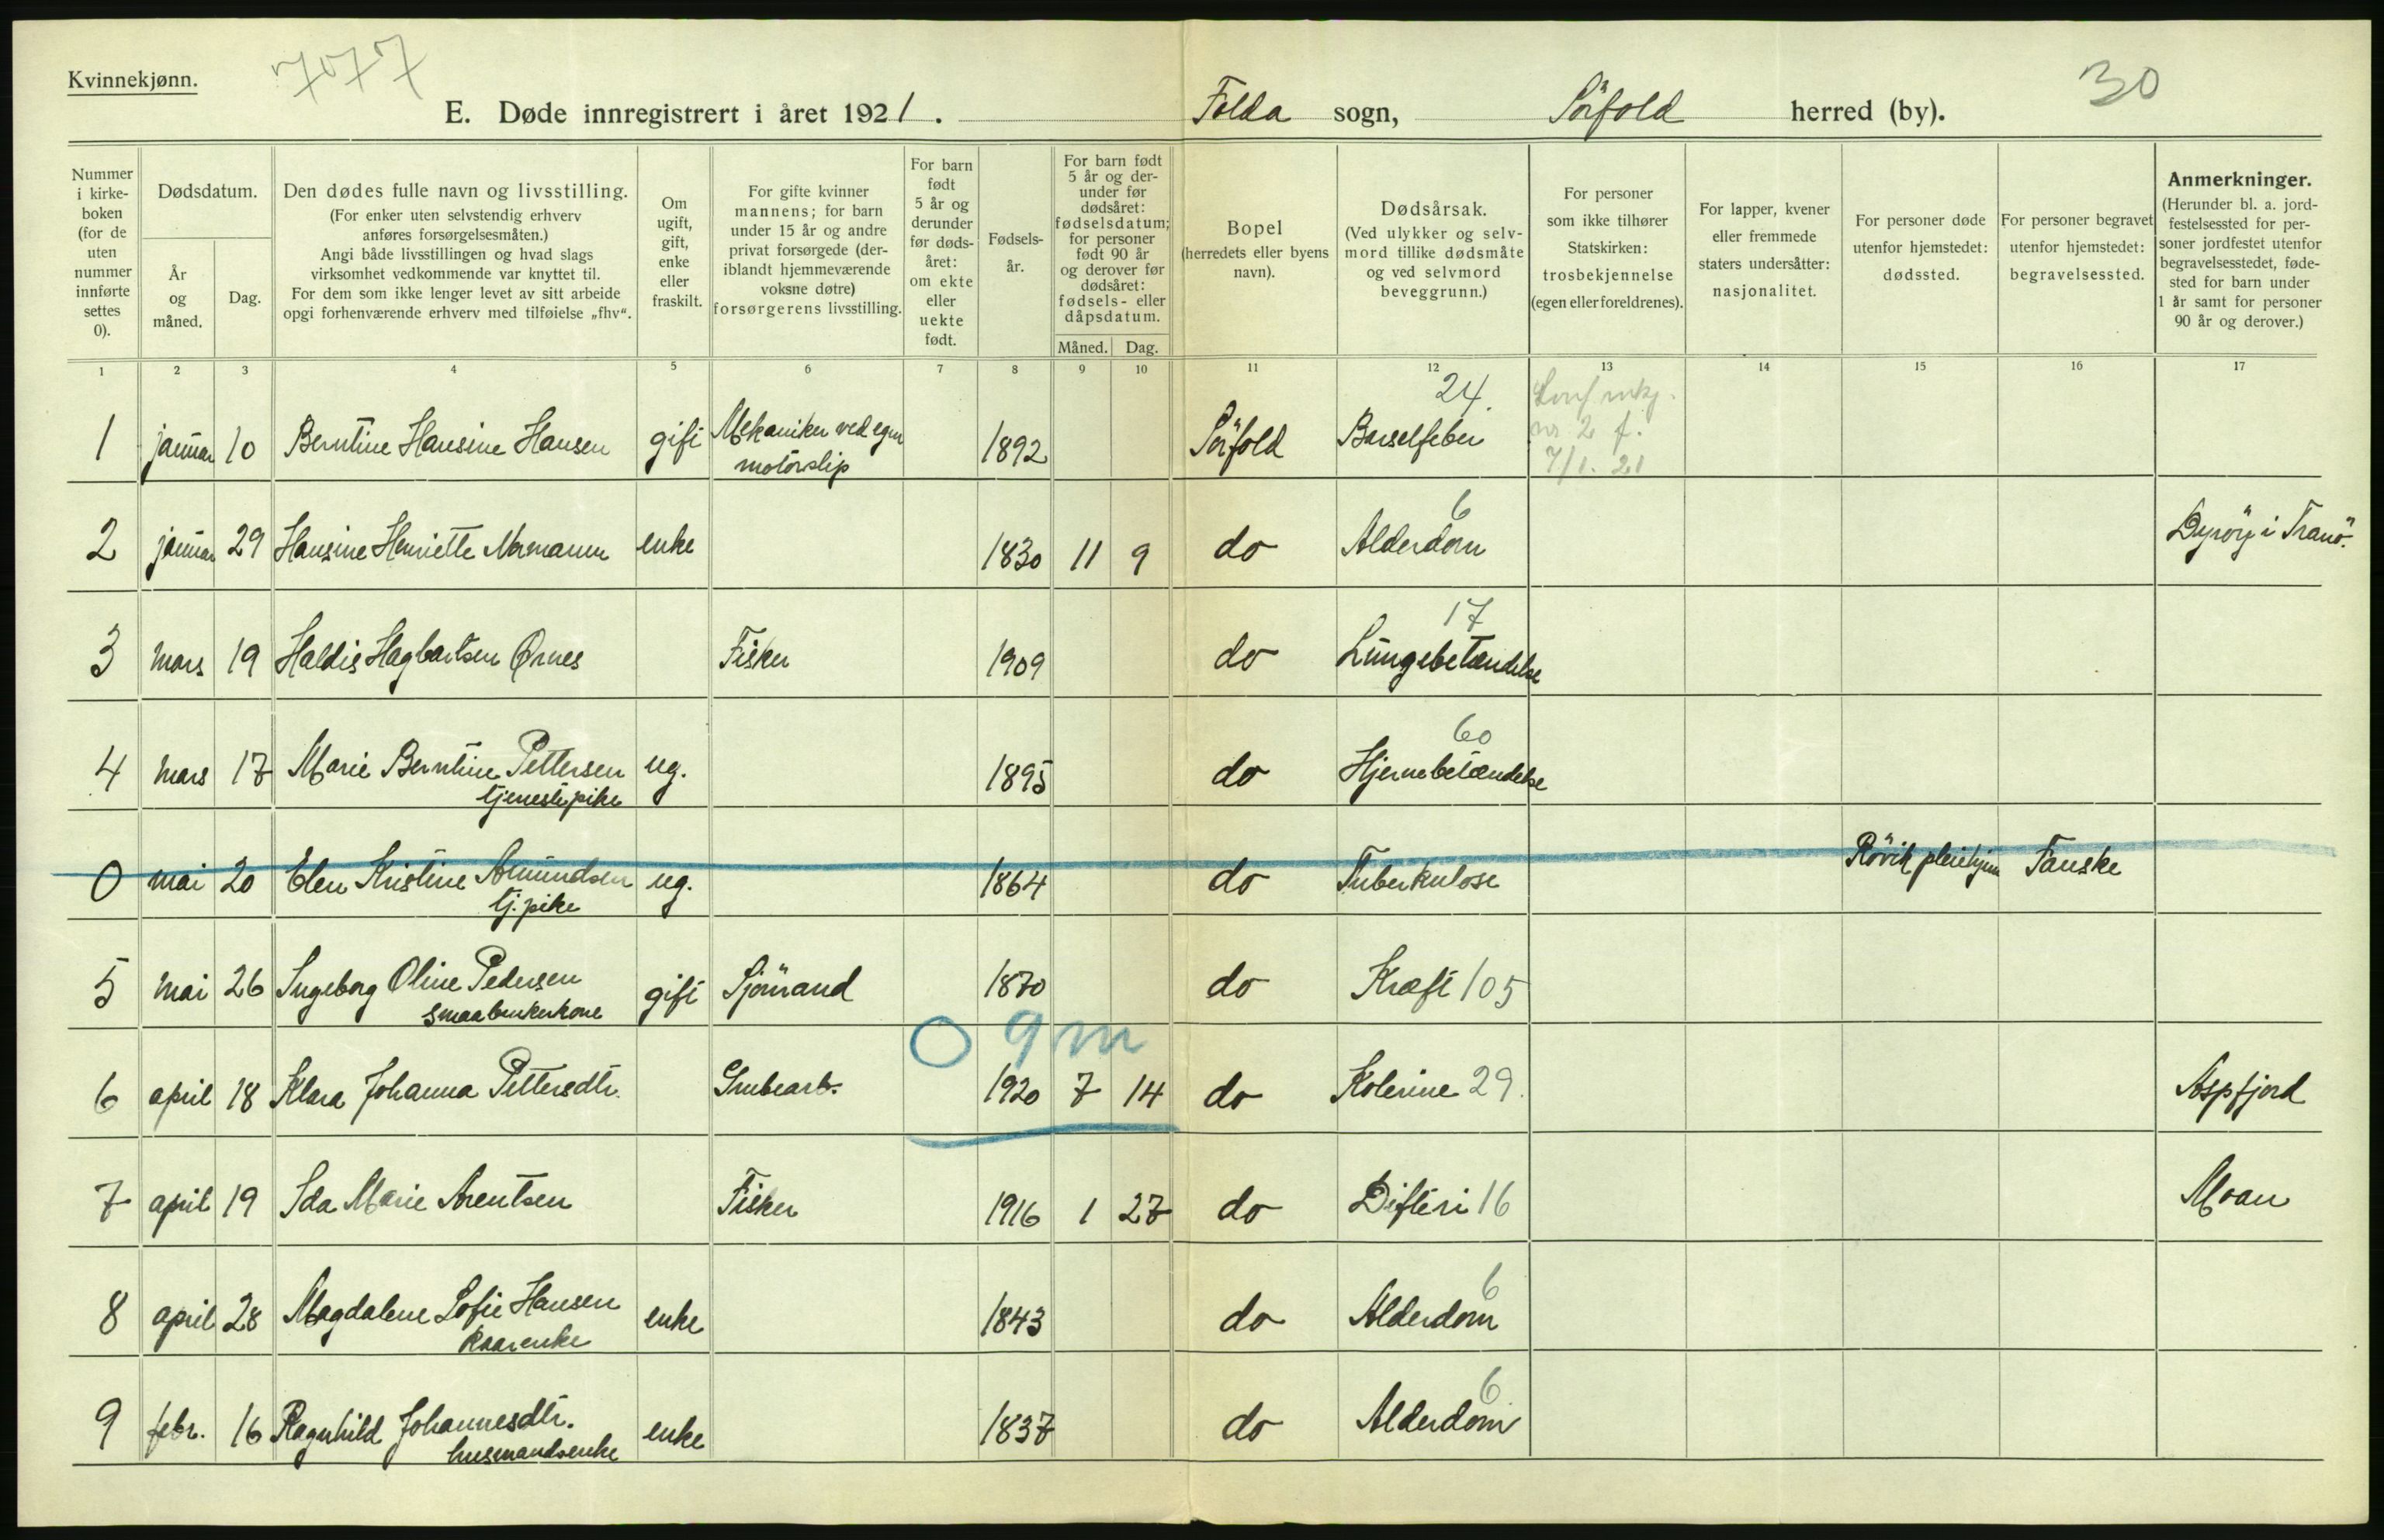 Kvinnekjønn.
7077
30
E. Døde innregistrert i året 1921. Folda sogn, Sörfold herred (by).
Nummer i kirkeboken (for de uten nummer innførte settes 0).
Dødsdatum.
År og måned.
Dag.
Den dødes fulle navn og livsstilling.
(For enker uten selvstendig erhverv anføres forsørgelsesmåten.)
Angi både livsstillingen og hvad slags virksomhet vedkommende var knyttet til.
For dem som ikke lenger levet av sitt arbeide opgi forhenværende erhverv med tilføielse „fhv“.
Om ugift, gift, enke eller fraskilt.
For gifte kvinner mannens; for barn under 15 år og andre privat forsørgede (deriblandt hjemmeværende voksne døtre) forsørgerens livsstilling.
For barn født 5 år og derunder før dødsåret: om ekte eller uekte født.
Fødselsår.
For barn født 5 år og derunder før dødsåret: fødselsdatum; for personer født 90 år og derover før dødsåret: fødsels- eller dåpsdatum.
Måned. Dag.
Bopel (herredets eller byens navn).
Dødsårsak.
(Ved ulykker og selvmord tillike dødsmåte og ved selvmord beveggrunn.)
For personer som ikke tilhører Statskirken: trosbekjennelse (egen eller foreldrenes).
For lapper, kvener eller fremmede staters undersåtter: nasjonalitet.
For personer døde utenfor hjemstedet: dødssted.
For personer begravet utenfor hjemstedet: begravelsessted.
Anmerkninger.
(Herunder bl. a. jordfestelsessted for personer jordfestet utenfor begravelsesstedet, fødested for barn under 1 år samt for personer 90 år og derover.)
1 2 3 4 5 6 7 8 9 10 11 12 13 14 15 16 17
1 januar 10 Berntine Hansine Hansen gift Mekaniker ved egen motorslip 1892 Sörfold Barselfeber 24. nr 2 f. 7/1. 21
2 januar 29 Hansine Henriette Normann enke 1830 11 9 do Alderdom 6 Dyröy i Tranö.
3 mars 19 Haldis Hagbartsen Ørnes Fisker 1909 do Lungebetændelse 17
4 mars 17 Marie Berntine Pettersen tjenestepike ug. 1895 do Hjernebetændelse 60
0 mai 20 Elen Kristine Amundsen tj. pike ug. 1864 do Tuberkulose Rövik pleiehjem Fauske
5 mai 26 Ingeborg Oline Pedersen smaabrukerkone gift Sjömand 1870 do Kræft 105
0 9 m
6 april 18 Klara Johanna Pettersdtr. Grubearb. 1920 7 14 do Kolerine 29. Aspfjord
7 april 19 Ida Marie Arentsen Fisker 1916 1 27 do Difteri 16 Moan
8 april 28 Magdalene Sofie Hansen kaarenke enke 1843 do Alderdom 6
9 febr. 16 Ragnhild Johannesdtr. husmandsenke enke 1837 do Alderdom 6